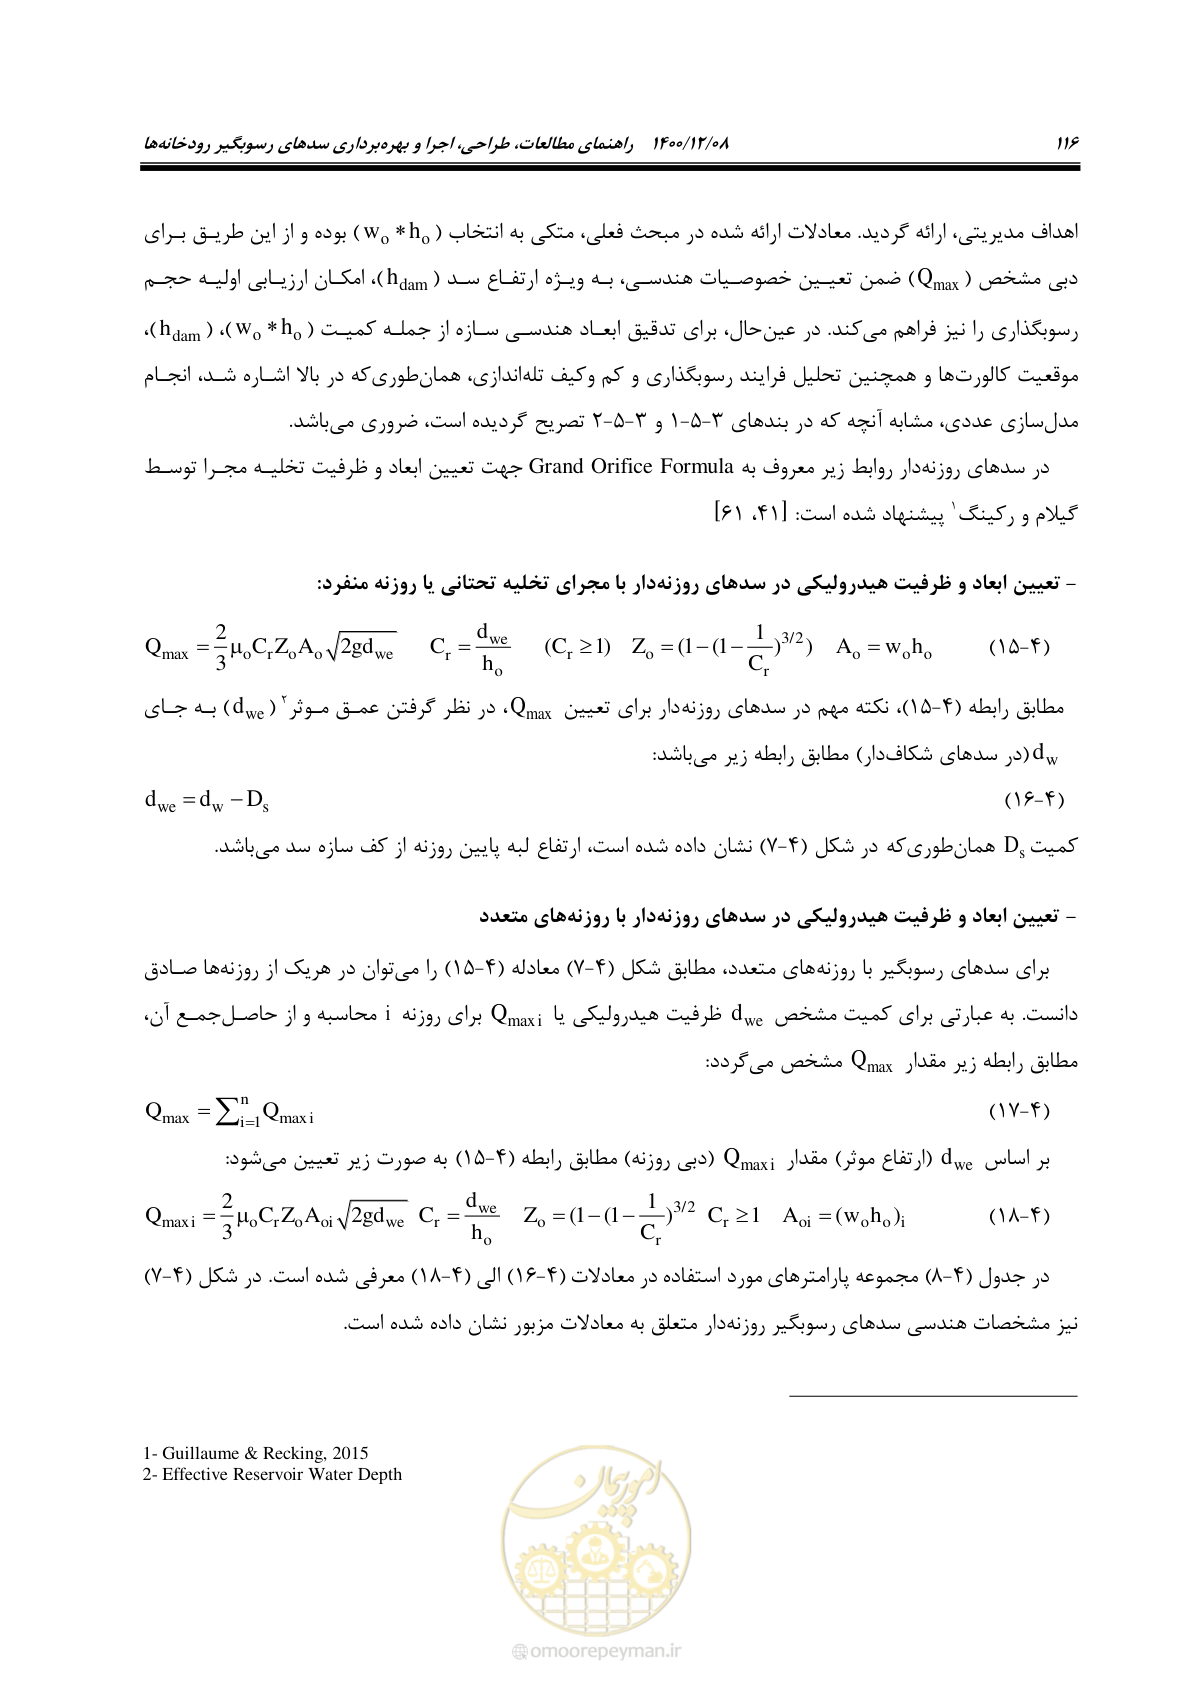 ۱۱۶ ۱۴۰۰/۱۲/۰۸ راهنمای مطالعات، طراحی، اجرا و بهره‌برداری سدهای رسوبگیر رودخانه‌ها
اهداف مدیریتی، ارائه گردید. معادلات ارائه شده در مبحث فعلی، متکی به انتخاب (w_o * h_o) بوده و از این طریق برای
دبی مشخص (Q_max) ضمن تعیین خصوصیات هندسی، به ویژه ارتفاع سد (h_dam)، امکان ارزیابی اولیه حجم
رسوبگذاری را نیز فراهم می‌کند. در عین‌حال، برای تدقیق ابعاد هندسی سازه از جمله کمیت (w_o * h_o)، (h_dam)،
موقعیت کالورت‌ها و همچنین تحلیل فرایند رسوبگذاری و کم وکیف تله‌اندازی، همان‌طوری‌که در بالا اشاره شد، انجام
مدل‌سازی عددی، مشابه آنچه که در بندهای ۳-۵-۱ و ۳-۵-۲ تصریح گردیده است، ضروری می‌باشد.
در سدهای روزنه‌دار روابط زیر معروف به Grand Orifice Formula جهت تعیین ابعاد و ظرفیت تخلیه مجرا توسط
گیلام و رکینگ۱ پیشنهاد شده است: [۴۱، ۶۱]
- تعیین ابعاد و ظرفیت هیدرولیکی در سدهای روزنه‌دار با مجرای تخلیه تحتانی یا روزنه منفرد:
Q_max = 2/3 μ_o C_r Z_o A_o √(2gd_we) C_r = d_we/h_o (C_r ≥ 1) Z_o = (1−(1−1/C_r)^3/2) A_o = w_o h_o (۴-۱۵)
مطابق رابطه (۴-۱۵)، نکته مهم در سدهای روزنه‌دار برای تعیین Q_max، در نظر گرفتن عمق موثر۲ (d_we) به جای
d_w (در سدهای شکاف‌دار) مطابق رابطه زیر می‌باشد:
d_we = d_w − D_s (۴-۱۶)
کمیت D_s همان‌طوری‌که در شکل (۴-۷) نشان داده شده است، ارتفاع لبه پایین روزنه از کف سازه سد می‌باشد.
- تعیین ابعاد و ظرفیت هیدرولیکی در سدهای روزنه‌دار با روزنه‌های متعدد
برای سدهای رسوبگیر با روزنه‌های متعدد، مطابق شکل (۴-۷) معادله (۴-۱۵) را می‌توان در هریک از روزنه‌ها صادق
دانست. به عبارتی برای کمیت مشخص d_we ظرفیت هیدرولیکی یا Q_max i برای روزنه i محاسبه و از حاصل‌جمع آن،
مطابق رابطه زیر مقدار Q_max مشخص می‌گردد:
Q_max = ∑_{i=1}^{n} Q_max i (۴-۱۷)
بر اساس d_we (ارتفاع موثر) مقدار Q_max i (دبی روزنه) مطابق رابطه (۴-۱۵) به صورت زیر تعیین می‌شود:
Q_max i = 2/3 μ_o C_r Z_o A_oi √(2gd_we) C_r = d_we/h_o Z_o = (1−(1−1/C_r)^3/2 C_r ≥ 1 A_oi = (w_o h_o)_i (۴-۱۸)
در جدول (۴-۸) مجموعه پارامترهای مورد استفاده در معادلات (۴-۱۶) الی (۴-۱۸) معرفی شده است. در شکل (۴-۷)
نیز مشخصات هندسی سدهای رسوبگیر روزنه‌دار متعلق به معادلات مزبور نشان داده شده است.
1- Guillaume & Recking, 2015
2- Effective Reservoir Water Depth
امور پیمان
omoorepeyman.ir